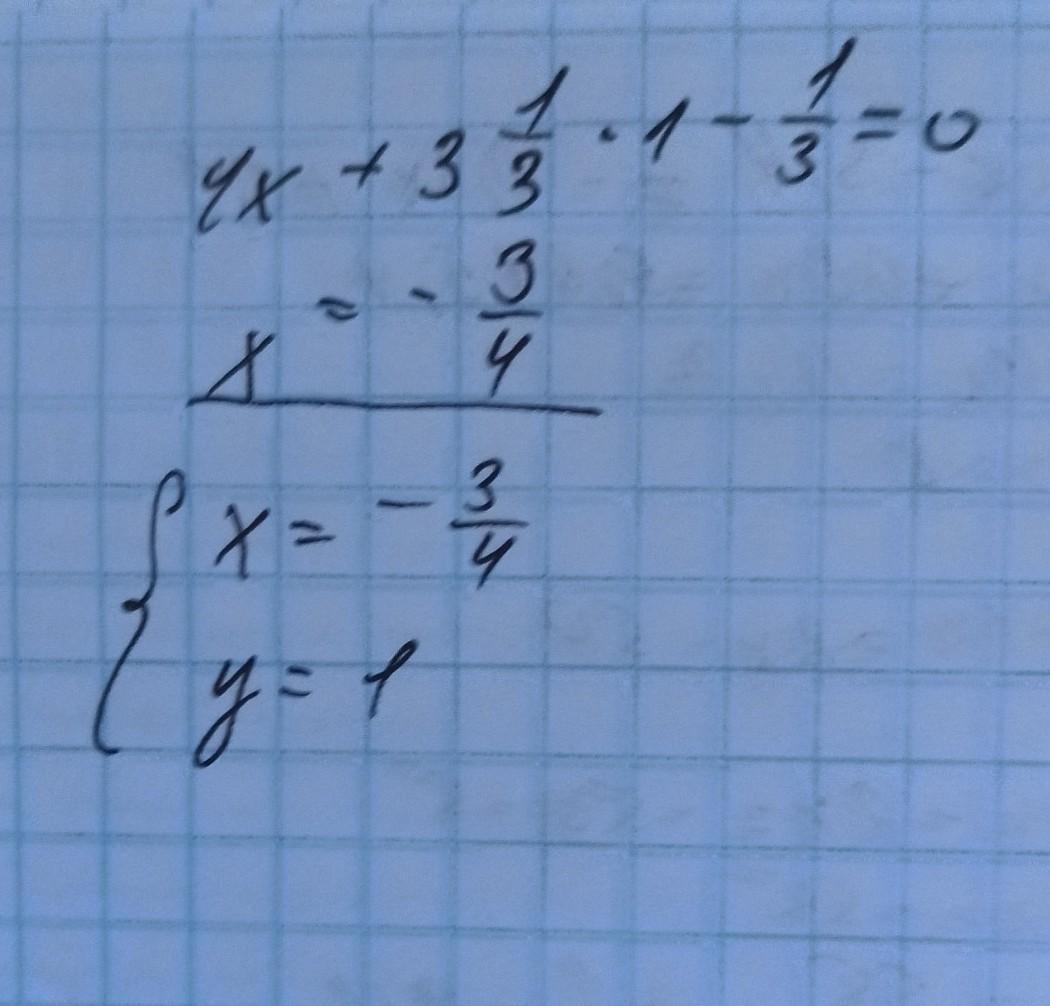 4x + 3 1/3 · 1 - 1/3 = 0
x = - 3/4
{ x = - 3/4
y = 1